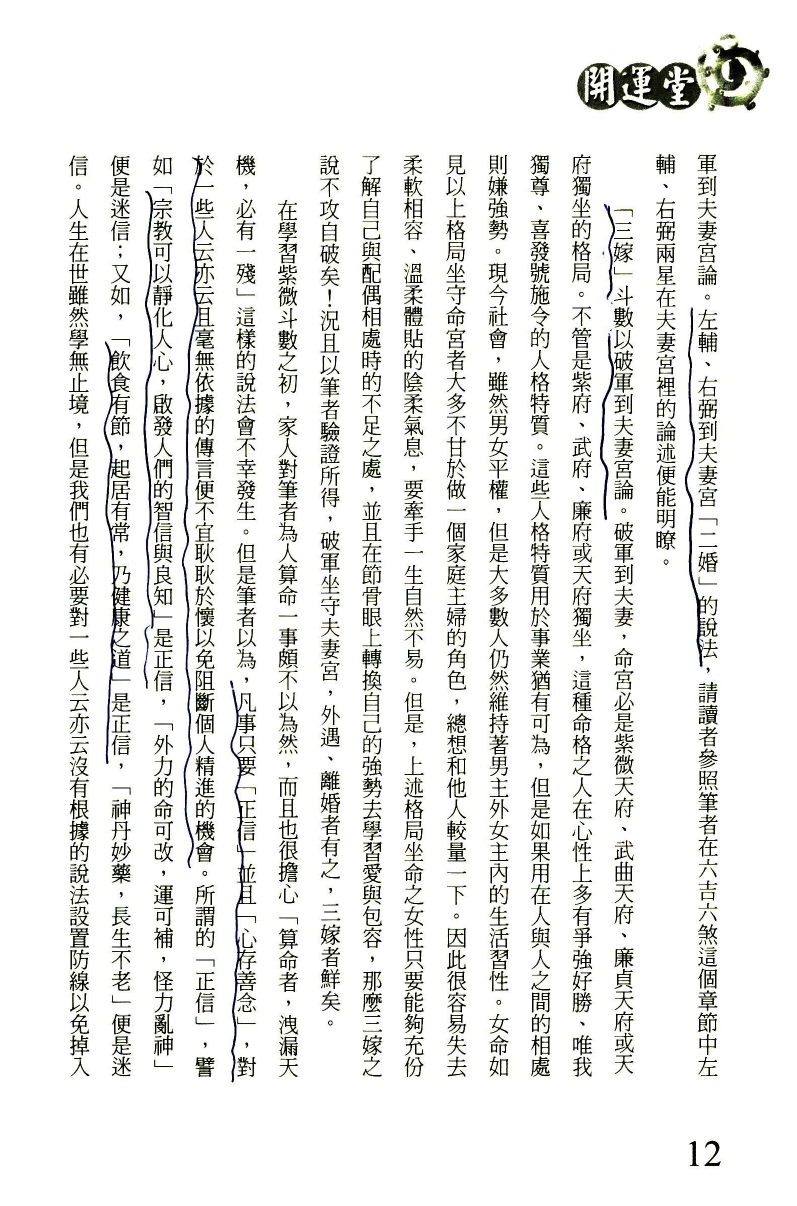 開運堂
軍到夫妻宮論。左輔、右弼到夫妻宮「二婚」的說法，請讀者參照筆者在六吉六煞這個章節中左
輔、右弼兩星在夫妻宮裡的論述便能明瞭。
「三嫁」斗數以破軍到夫妻宮論。破軍到夫妻，命宮必是紫微天府、武曲天府、廉貞天府或天
府獨坐的格局。不管是紫府、武府、廉府或天府獨坐，這種命格之人在心性上多有爭強好勝、唯我
獨尊、喜發號施令的人格特質。這些人格特質用於事業猶有可為，但是如果用在人與人之間的相處
則嫌強勢。現今社會，雖然男女平權，但是大多數人仍然維持著男主外女主內的生活習性。女命如
見以上格局坐守命宮者大多不甘於做一個家庭主婦的角色，總想和他人較量一下。因此很容易失去
柔軟相容、溫柔體貼的陰柔氣息，要牽手一生自然不易。但是，上述格局坐命之女性只要能夠充份
了解自己與配偶相處時的不足之處，並且在節骨眼上轉換自己的強勢去學習愛與包容，那麼三嫁之
說不攻自破矣！況且以筆者驗證所得，破軍坐守夫妻宮，外遇、離婚者有之，三嫁者鮮矣。
在學習紫微斗數之初，家人對筆者為人算命一事頗不以為然，而且也很擔心「算命者，洩漏天
機，必有一殘」這樣的說法會不幸發生。但是筆者以為，凡事只要「正信」並且「心存善念」，對
於一些人云亦云且毫無依據的傳言便不宜耿耿於懷以免阻斷個人精進的機會。所謂的「正信」，譬
如「宗教可以靜化人心，啟發人們的智信與良知」是正信，「外力的命可改，運可補，怪力亂神」
便是迷信；又如，「飲食有節，起居有常，乃健康之道」是正信，「神丹妙藥，長生不老」便是迷
信。人生在世雖然學無止境，但是我們也有必要對一些人云亦云沒有根據的說法設置防線以免掉入
12